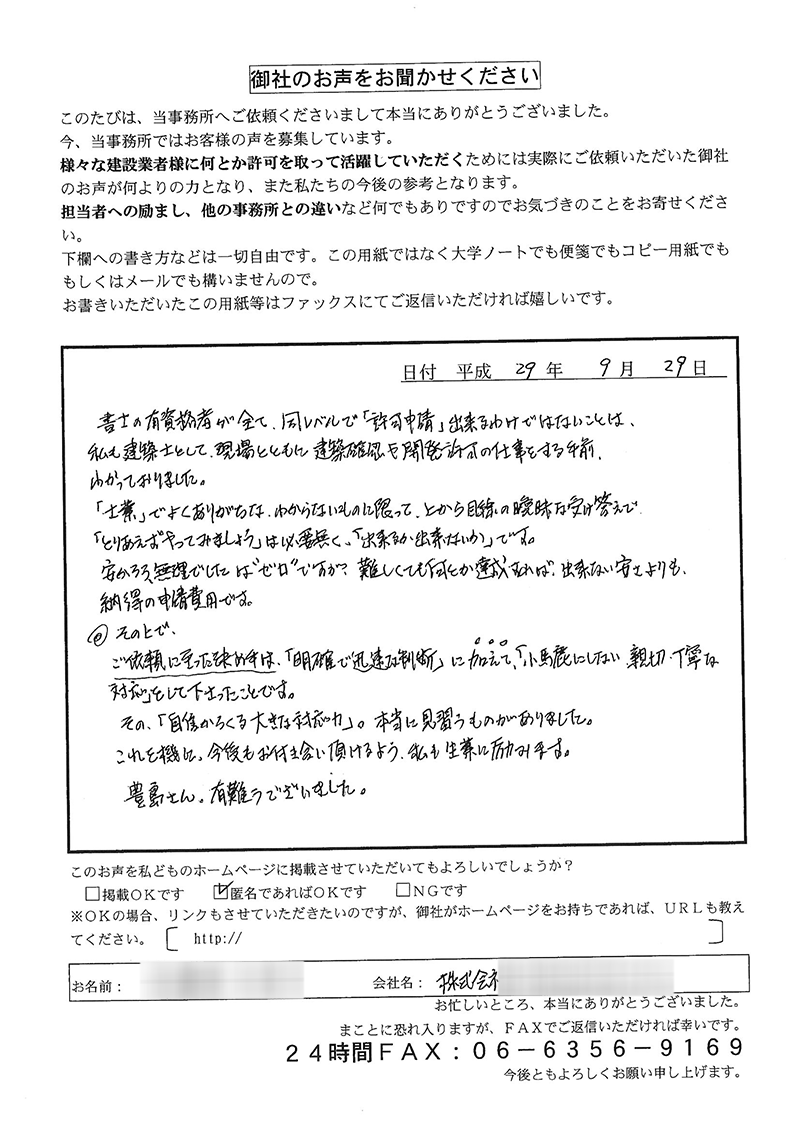 御社のお声をお聞かせください
このたびは、当事務所へご依頼くださいまして本当にありがとうございました。
今、当事務所ではお客様の声を募集しています。
様々な建設業者様に何とか許可を取って活躍していただくためには実際にご依頼いただいた御社
のお声が何よりの力となり、また私たちの今後の参考となります。
担当者への励まし、他の事務所との違いなど何でもありですのでお気づきのことをお寄せくださ
い。
下欄への書き方などは一切自由です。この用紙ではなく大学ノートでも便箋でもコピー用紙でも
もしくはメールでも構いませんので。
お書きいただいたこの用紙等はファックスにてご返信いただければ嬉しいです。
日付 平成 29 年 9 月 29 日
書士の有資格者が全て、同レベルで「許可申請」出来るわけではないことは、
私も建築士として、現場とともに建築確認や開発許可の仕事をする手前、
わかっておりました。
「士業」でよくありがちな、わからないものに限って、上から目線の曖昧な受け答えで
「とりあえずやってみましょう」は必要無く、「出来るか出来ないか」です。
安かろう、無理でしたは"ゼロ"ですが、難しくても何とか達成すれば、出来ない安さよりも、
納得の申請費用です。
その上で、
ご依頼に至った決め手は、「明確で迅速な判断」に加えて、「小馬鹿にしない、親切・丁寧な
対応」をして下さったことです。
その、「自信からくる大きな対応力」。本当に見習うものがありました。
これを機に、今後もお付き合い頂けるよう、私も生業に励みます。
豊島さん。有難うございました。
このお声を私どものホームページに掲載させていただいてもよろしいでしょうか？
□掲載ＯＫです ☑匿名であればＯＫです □ＮＧです
※ＯＫの場合、リンクもさせていただきたいのですが、御社がホームページをお持ちであれば、ＵＲＬも教え
てください。 [ http:// ]
お名前： 会社名： 株式会社
お忙しいところ、本当にありがとうございました。
まことに恐れ入りますが、ＦＡＸでご返信いただければ幸いです。
２４時間ＦＡＸ：０６－６３５６－９１６９
今後ともよろしくお願い申し上げます。